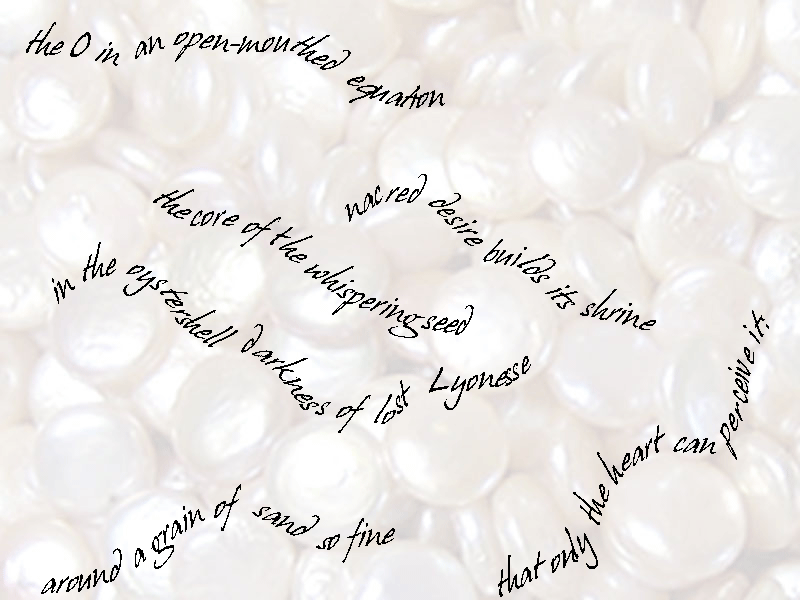 the O in an open-mouthed equation
nacred desire builds its shrine
the core of the whispering seed
in the oystershell darkness of lost Lyonesse
around a grain of sand so fine
that only the heart can perceive it.